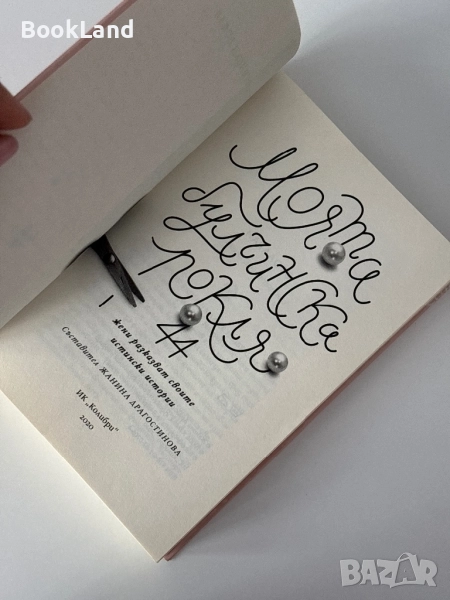 BookLand
Моята
булчинска
рокля
44
жени разказват своите
истински истории
Съставител ЖАНИНА ДРАГОСТИНОВА
ИК „Колибри“
2020
BAZAR